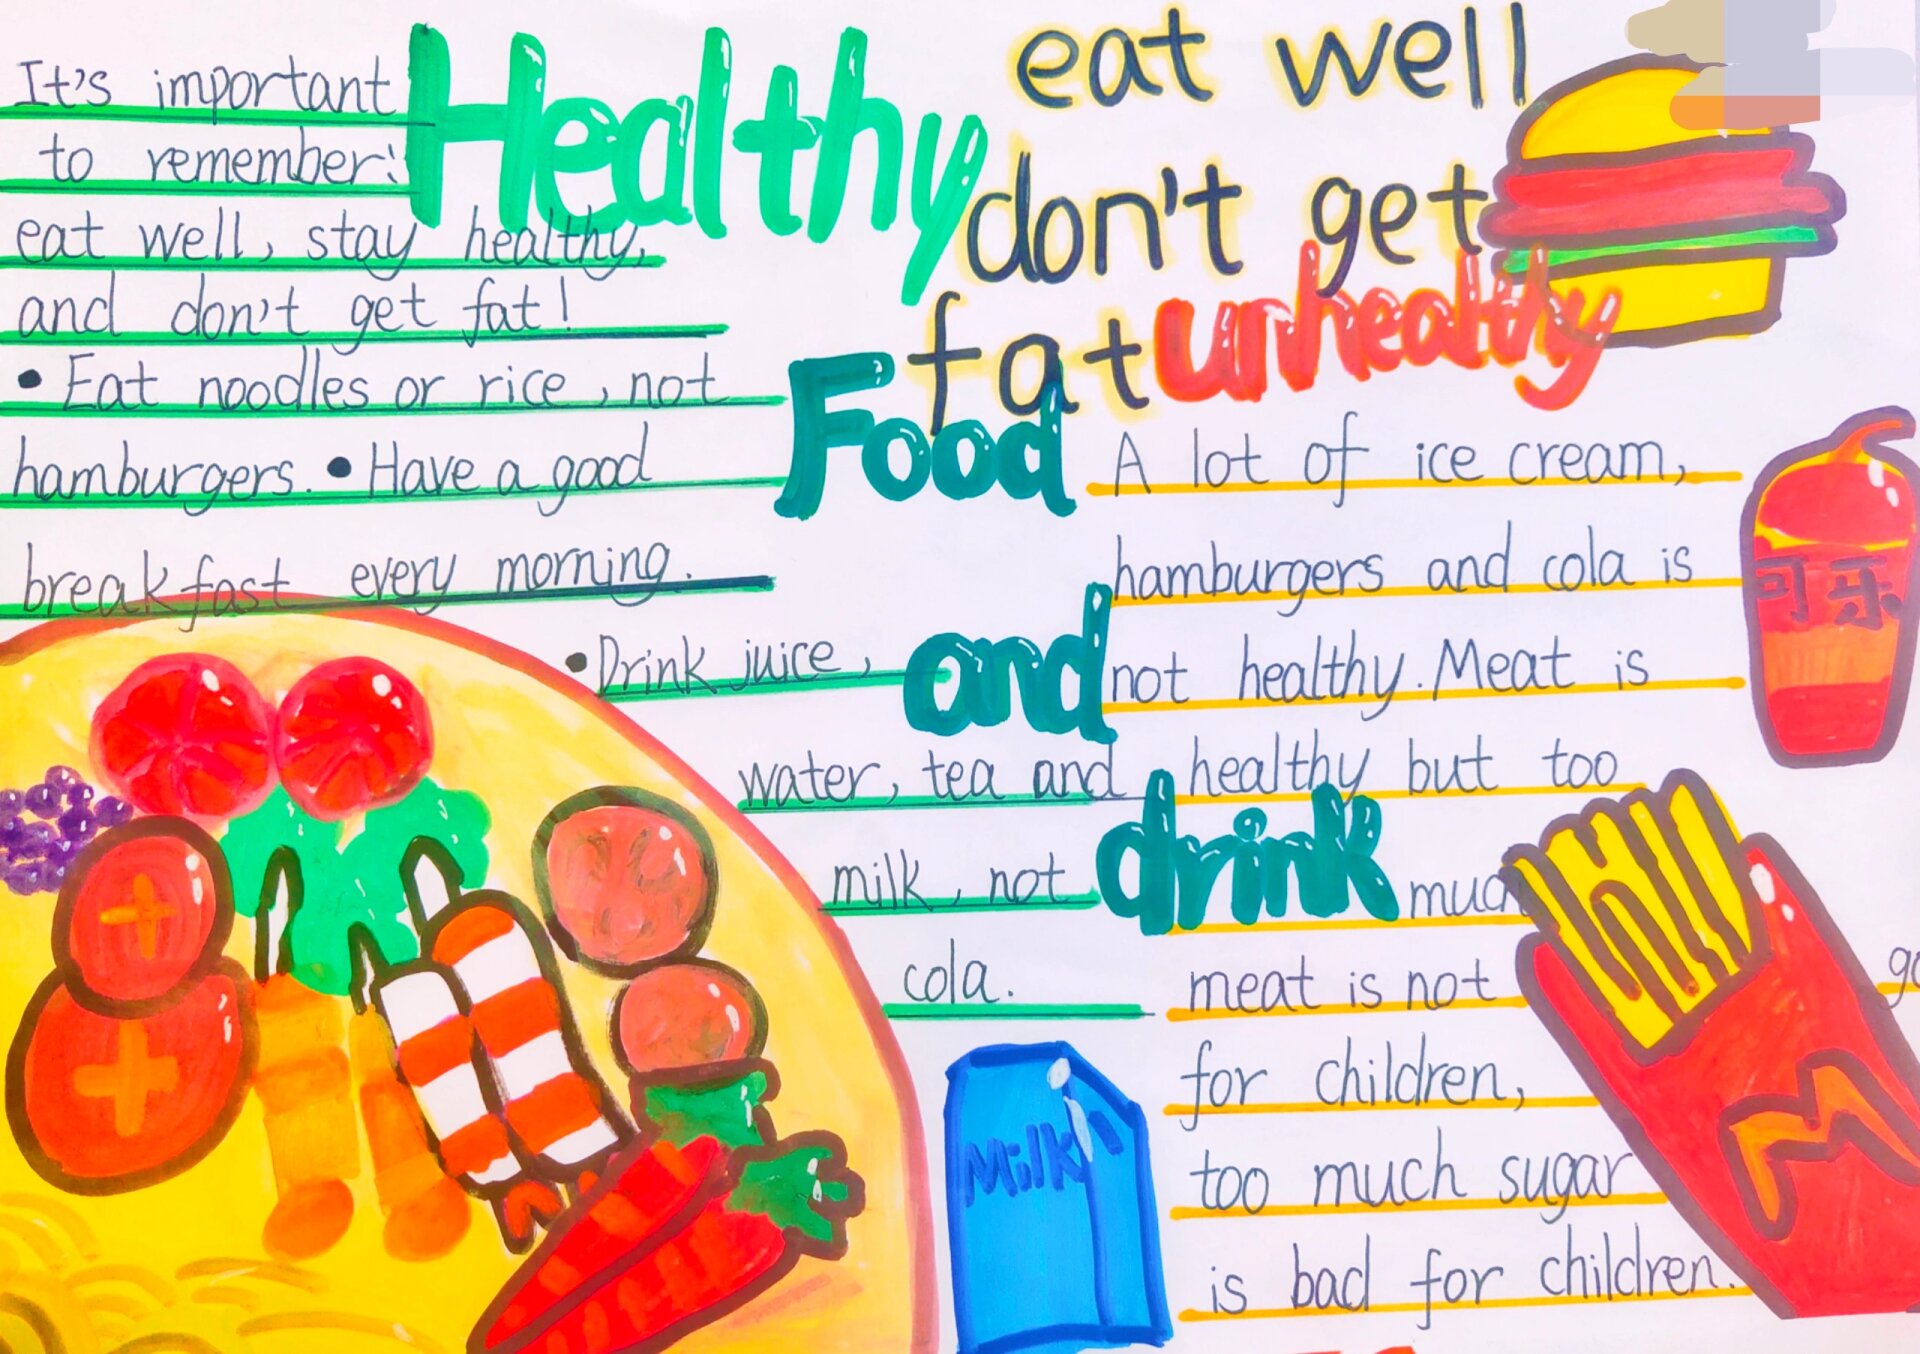 Healthy
Food
and
drink
eat well
don't get
fat
unhealthy
It's important
to remember:
eat well, stay healthy,
and don't get fat!
• Eat noodles or rice, not
hamburgers. • Have a good
breakfast every morning.
• Drink juice,
water, tea and
milk, not
cola.
A lot of ice cream,
hamburgers and cola is
not healthy. Meat is
healthy but too
much
meat is not
for children,
too much sugar
is bad for children.
可乐
Milk
M